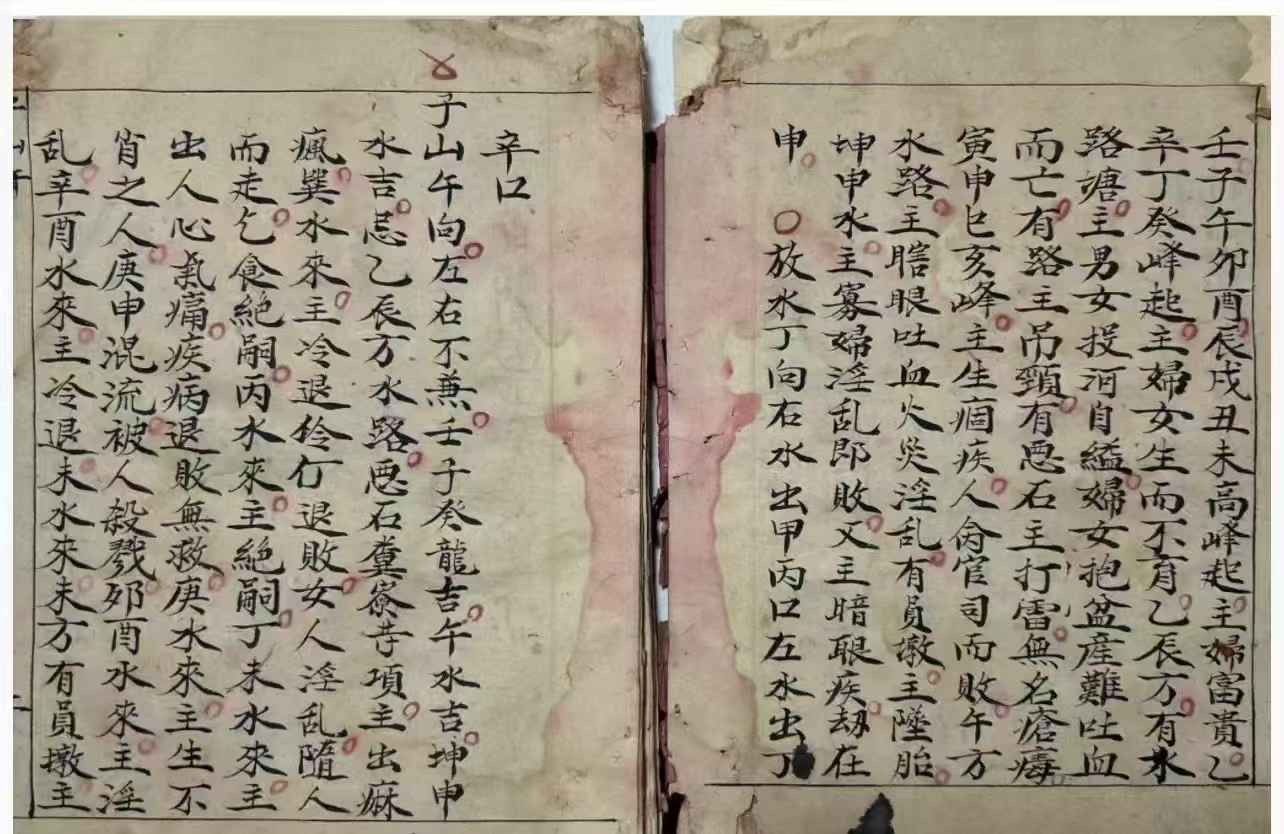 壬子午卯酉辰戌丑未高峰起主婦富貴乙
辛丁癸峰起主婦女生而不育乙辰方有水
路塘主男女投河自縊婦女抱盆産難吐血
而亡有路主吊頸有恶石主打雷無名瘡毒
寅申巳亥峰主生痼疾人命官司而敗午方
水路主瞎眼吐血火災淫乱有員墩主墜胎
坤申水主寡婦淫乱即敗又主暗眼疾劫在
申 放水丁向右水出甲丙口左水出丁
辛口
子山午向左右不兼壬子癸龍吉午水吉坤申
水吉忌乙辰方水路恶石糞寮寺項主出麻
瘋巽水來主冷退伶仃退敗女人淫乱隨人
而走乞食絶嗣丙水來主絶嗣丁未水來主
出人心氣痛疾病退敗無救庚水來主生不
肖之人庚申混流被人殺戮卯酉水來主淫
乱辛酉水來主冷退未水來未方有員墩主